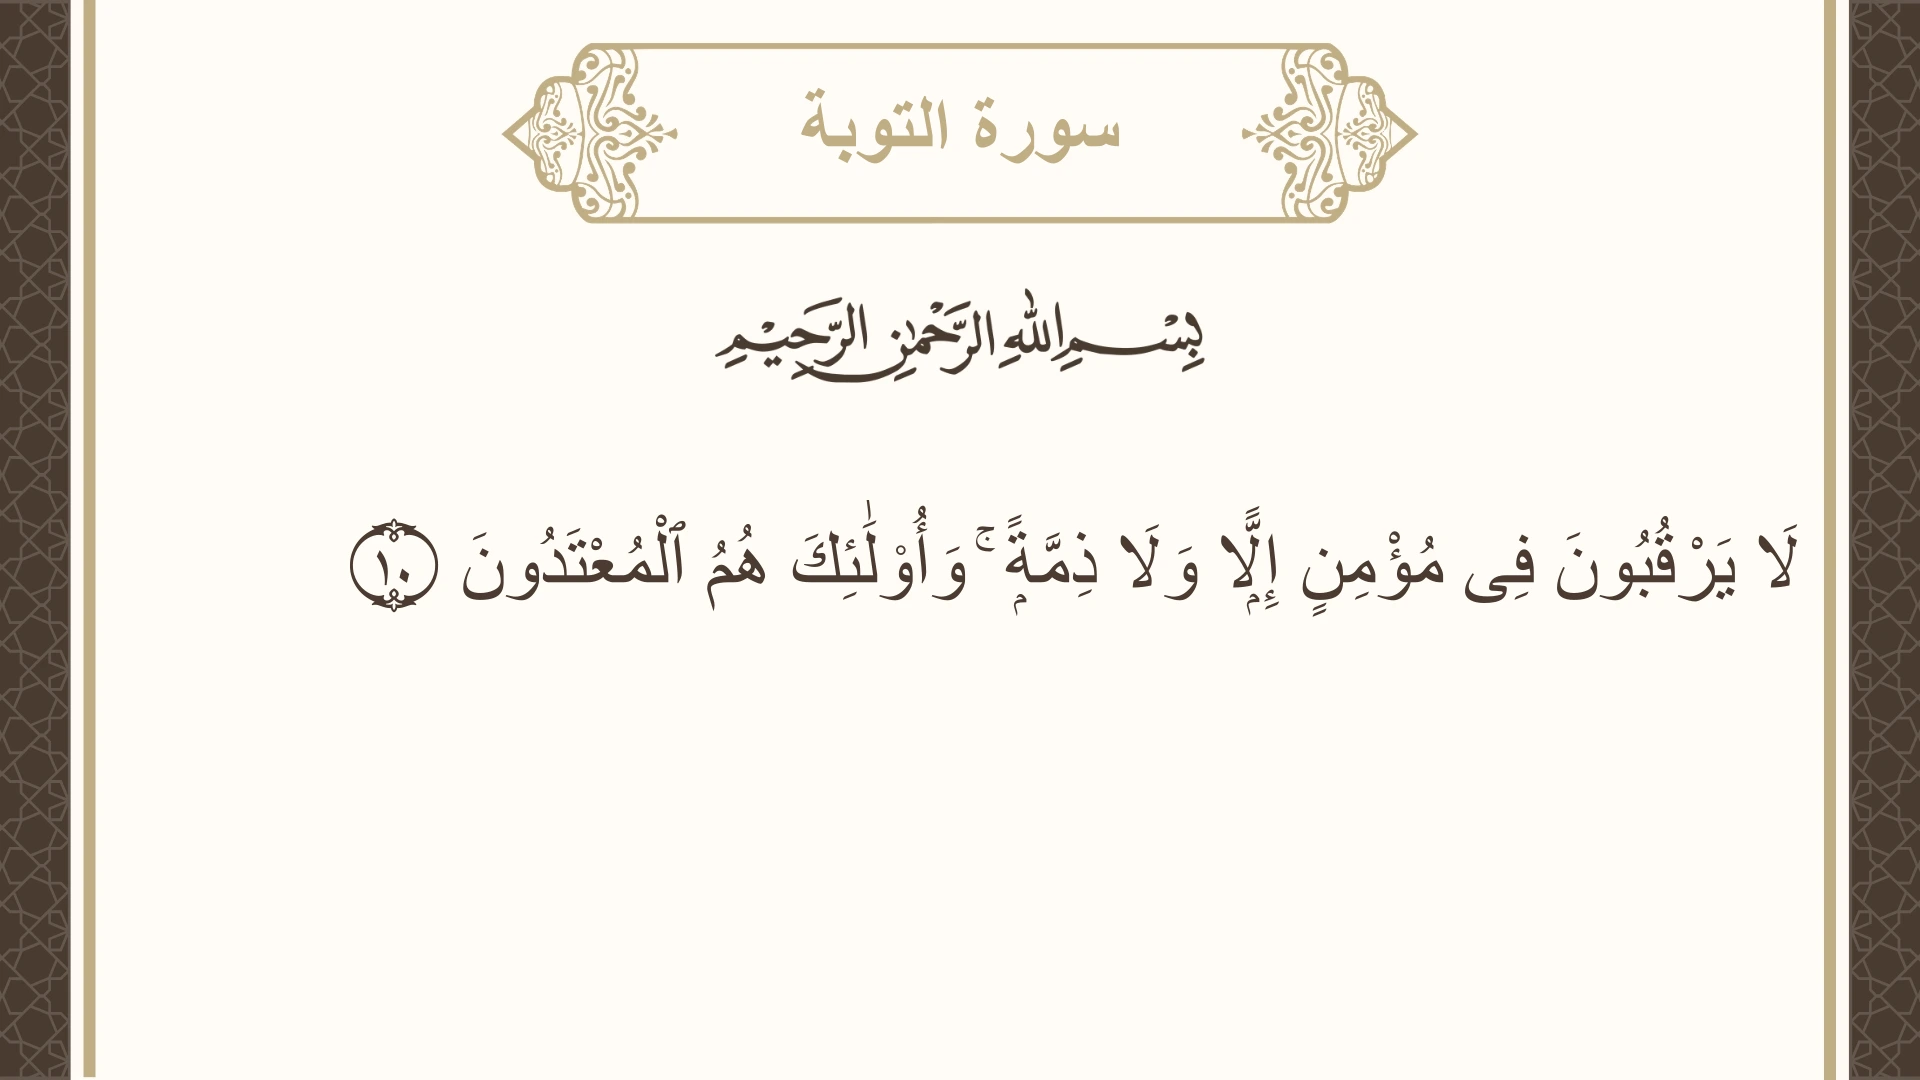 سورة التوبة
بِسْمِ اللهِ الرَّحْمٰنِ الرَّحِيْمِ
لَا يَرْقُبُونَ فِى مُؤْمِنٍ إِلًّۭا وَلَا ذِمَّةًۭ ۚ وَأُو۟لَٰٓئِكَ هُمُ ٱلْمُعْتَدُونَ ١٠